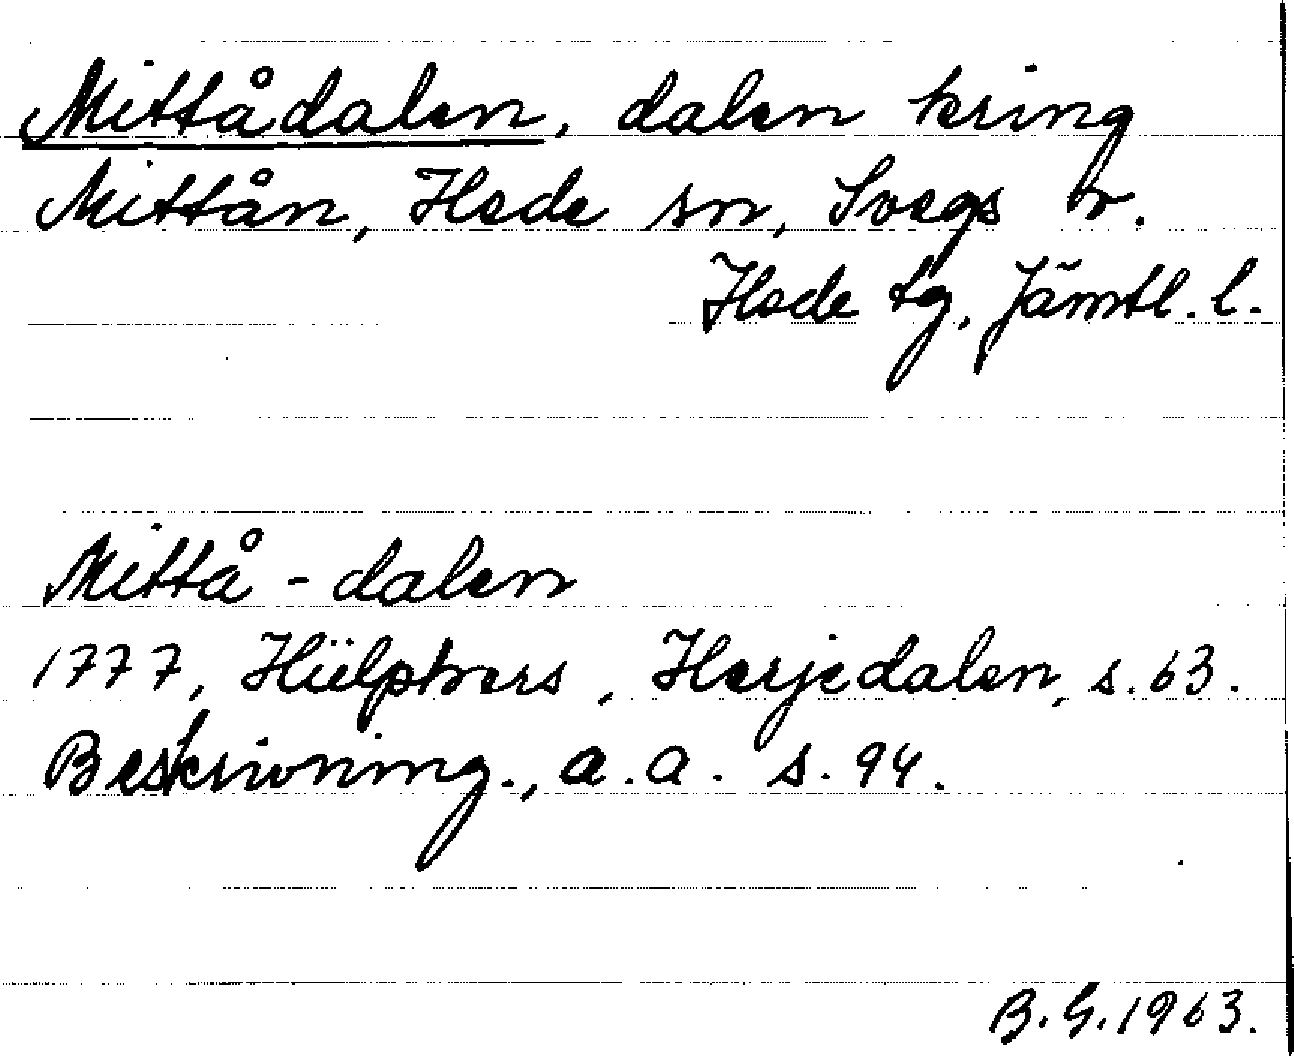 Mittådalen, dalen kring
Mittån, Hede sn, Svegs tr.
Hede tg, Jämtl. l.
Mittå - dalen
1777, Hülphers, Herjedalen, s. 63.
Beskrivning., a.a. s. 94.
B.G. 1963.